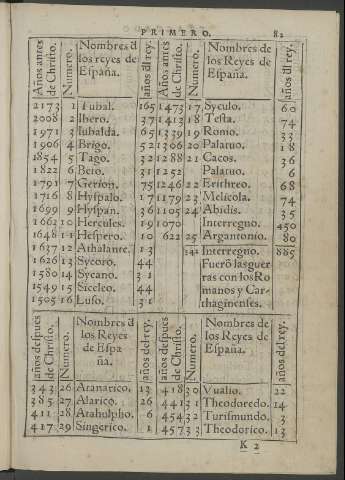 PRIMERO. 82
Años antes de Christo. Numero. Nombres d̃ los reyes de España. años dl rey. Años antes de Christo. Numero. Nombres de los Reyes de España. años dl rey.
2173 1 Tubal. 165 1473 17 Syculo. 60
2008 2 Ibero. 37 1413 18 Testa. 74
1971 3 Iubalda. 65 1339 19 Romo. 33
1906 4 Brigo. 52 1306 20 Palatuo. 18
1854 5 Tago. 32 1288 21 Cacos. 36
1822 6 Beto. 31 1252 Palatuo. 6
1791 7 Gerion. 75 1246 22 Erithreo. 68
1716 8 Hyspalo. 17 1179 23 Melicola. 74
1699 9 Hyspan. 36 1105 24 Abidis. 35
1662 10 Hercules. 19 1070 Interregno. 450
1648 11 Hespero. 10 622 25 Argantonio. 80
1637 12 Athalante. 13 542 Interregno. 885
1626 13 Sycoro. 44 Fuerõ las guer
1580 14 Sycano. 31 ras con los Ro
1549 15 Siceleo. 44 manos y Car-
1505 16 Luso. 31 thaginenses.
años despues de Christo. Numero. Nombres d̃ los Reyes de Espa ña. años del rey. años despues de Christo. Numero. Nombres de los Reyes de España. años del rey.
343 26 Atanarico. 13 418 30 Vualio. 22
385 27 Alarico. 26 441 31 Theodoredo. 14
411 28 Atahulpho. 6 454 32 Turismundo. 3
417 29 Singerico. 1 457 33 Theodorico. 13
K 2